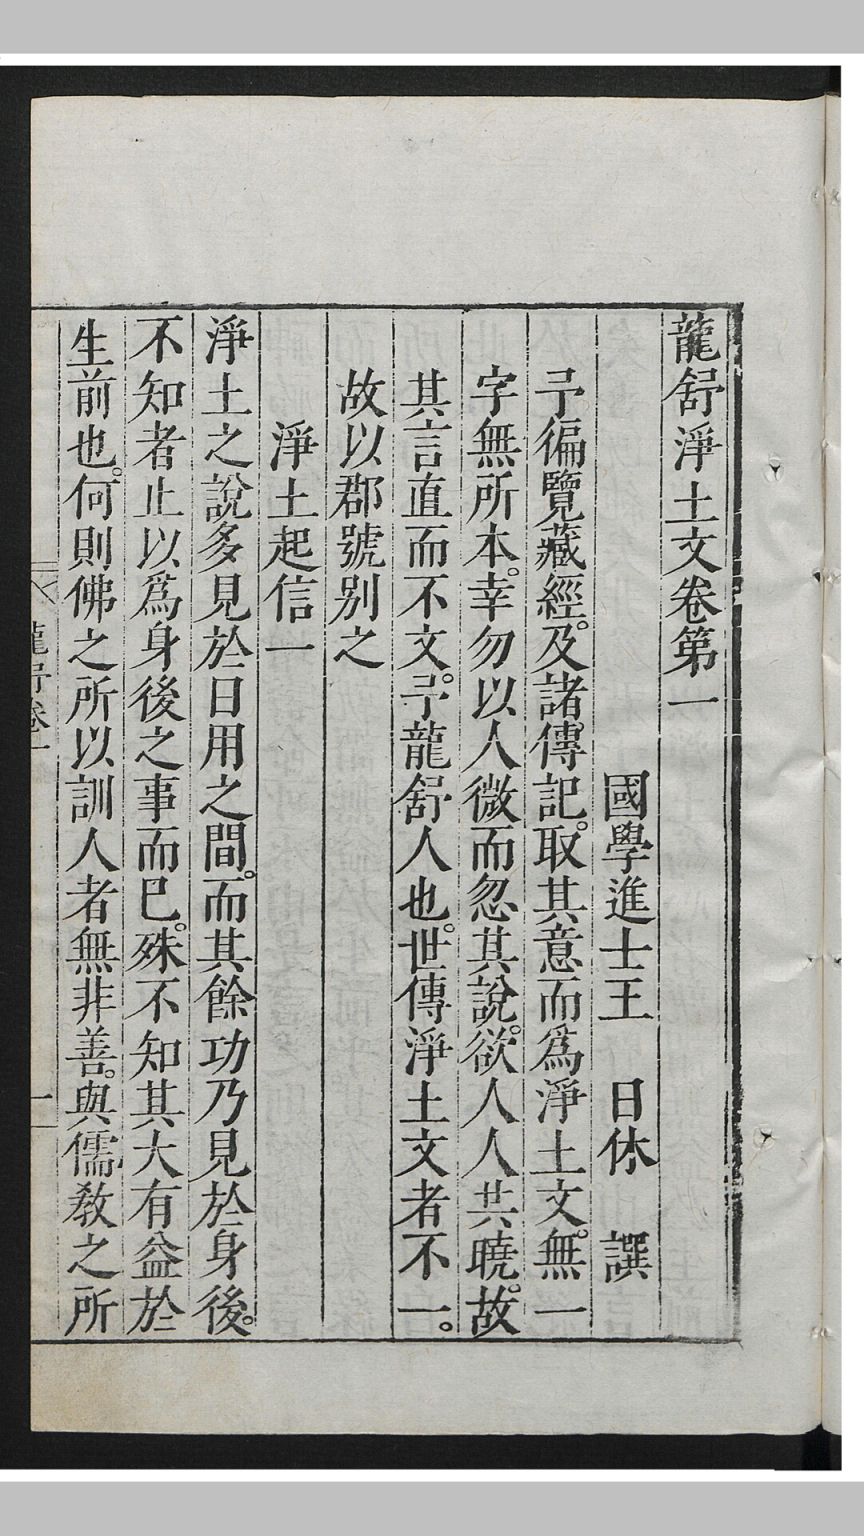 龍舒淨土文卷第一
國學進士王 日休 譔
予徧覽藏經。及諸傳記。取其意而爲淨土文。無一
字無所本。幸勿以人微而忽其說。欲人人共曉。故
其言直而不文。予龍舒人也。世傳淨土文者不一。
故以郡號別之
淨土起信一
淨土之說多見於日用之間。而其餘功乃見於身後。
不知者止以爲身後之事而已。殊不知其大有益於
生前也。何則佛之所以訓人者無非善。與儒教之所
龍舒卷一
一